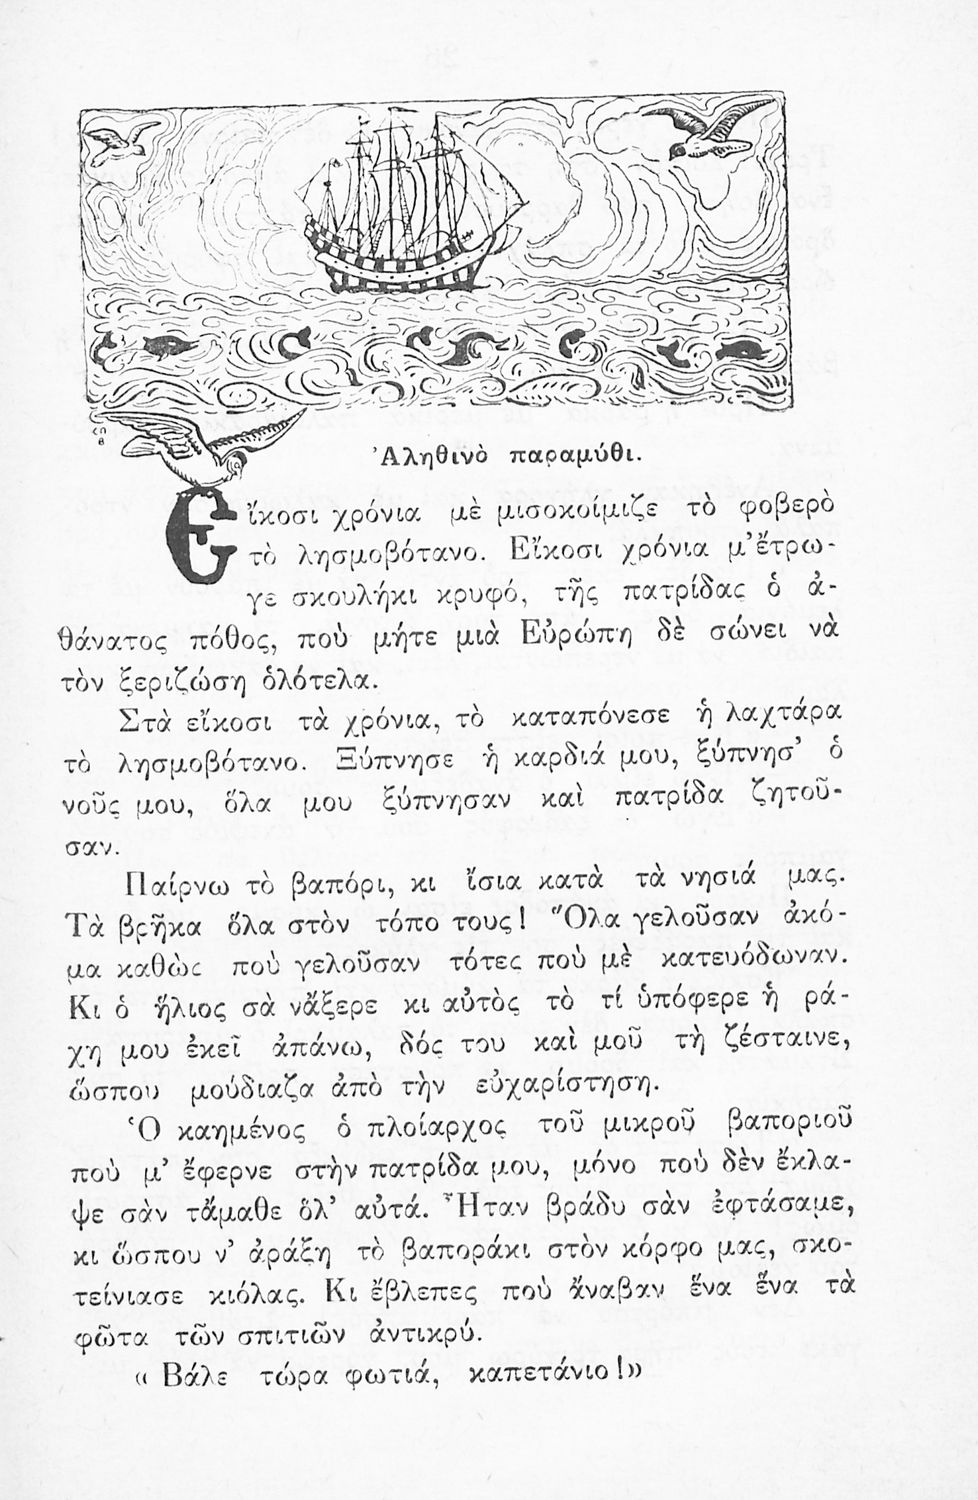 Ἀληθινὸ παραμύθι.
Εἴκοσι χρόνια μὲ μισοκοίμιζε τὸ φοβερὸ
τὸ λησμοβότανο. Εἴκοσι χρόνια μ' ἔτρω-
γε σκουλήκι κρυφό, τῆς πατρίδας ὁ ἀ-
θάνατος πόθος, ποὺ μήτε μιὰ Εὐρώπη δὲ σώνει νὰ
τὸν ξεριζώσῃ ὁλότελα.
Στὰ εἴκοσι τὰ χρόνια, τὸ καταπόνεσε ἡ λαχτάρα
τὸ λησμοβότανο. Ξύπνησε ἡ καρδιά μου, ξύπνησ' ὁ
νοῦς μου, ὅλα μου ξύπνησαν καὶ πατρίδα ζητοῦ-
σαν.
Παίρνω τὸ βαπόρι, κι ἴσια κατὰ τὰ νησιά μας.
Τὰ βρῆκα ὅλα στὸν τόπο τους! Ὅλα γελοῦσαν ἀκό-
μα καθὼς ποὺ γελοῦσαν τότες ποὺ μὲ κατευόδωναν.
Κι ὁ ἥλιος σὰ νἄξερε κι αὐτὸς τὸ τί ὑπόφερε ἡ ρά-
χη μου ἐκεῖ ἀπάνω, δός του καὶ μοῦ τὴ ζέσταινε,
ὥσπου μούδιαζα ἀπὸ τὴν εὐχαρίστηση.
Ὁ καημένος ὁ πλοίαρχος τοῦ μικροῦ βαποριοῦ
ποὺ μ' ἔφερνε στὴν πατρίδα μου, μόνο ποὺ δὲν ἔκλα-
ψε σὰν τἄμαθε ὅλ' αὐτά. Ἦταν βράδυ σὰν ἐφτάσαμε,
κι ὥσπου ν' ἀράξῃ τὸ βαποράκι στὸν κόρφο μας, σκο-
τείνιασε κιόλας. Κι ἔβλεπες ποὺ ἄναβαν ἕνα ἕνα τὰ
φῶτα τῶν σπιτιῶν ἀντικρύ.
« Βάλε τώρα φωτιά, καπετάνιο!»